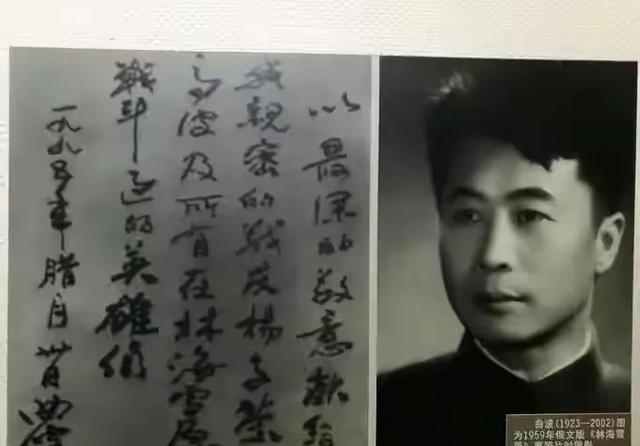 以最深的敬意献给
我親密的战友楊子荣
高波及所有在林海雪原
戰斗过的英雄们
一九九五年腊月日 曲波
曲波(1923—2002)图
为1959年俄文版《林海雪
原》